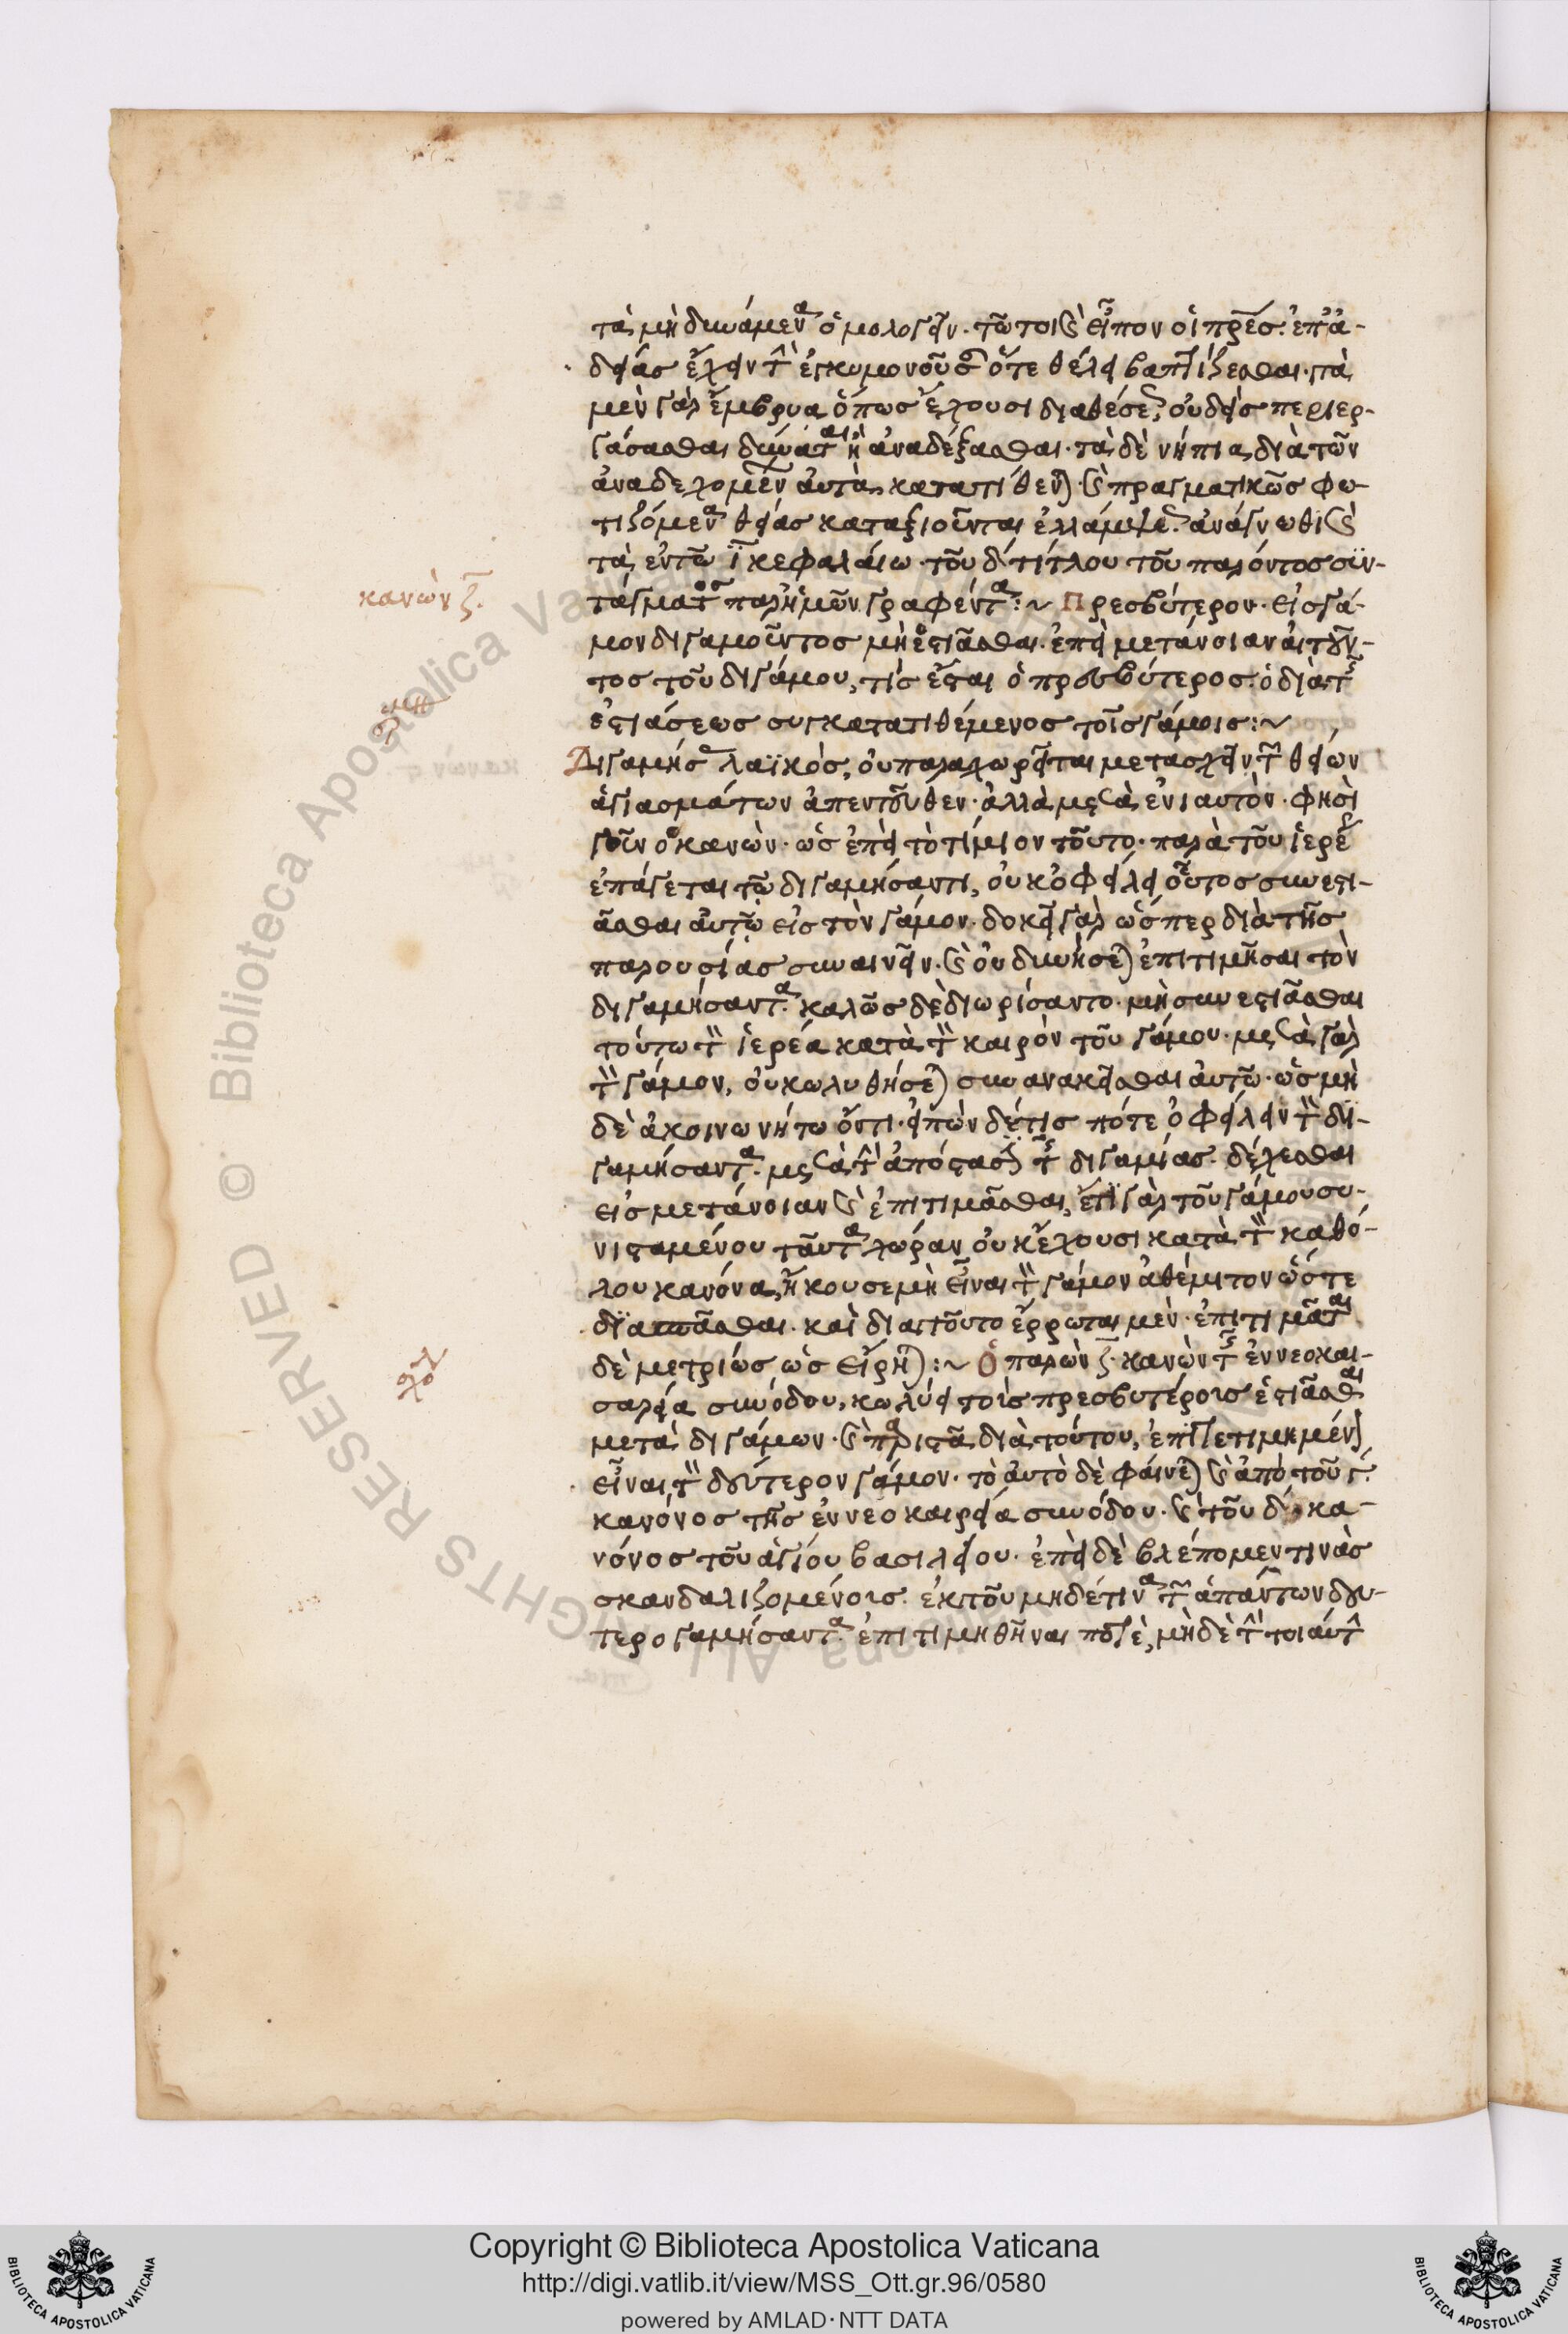 τὰ μὴ δυνάμενα ὁμολογεῖν. τῶ τοι καὶ εἶπον οἱ πρες. ἐπ' ἀ-
δείας ἔχειν τὴν ἐγκυμονοῦσαν ὅτε θέλει βαπτίζεσθαι. τὰ
μὲν γὰρ ἔμβρυα ὅπως ἔχουσι διαθέσεως, οὐδεὶς περιερ-
γάσασθαι δύναται ἢ ἀναδέξασθαι. τὰ δὲ νήπια, διὰ τῶν
ἀναδεχομένων αὐτὰ, κατατίθενται. καὶ πραγματικῶς φω-
τιζόμενα θείας καταξιοῦνται ἐλλάμψεως. ἀνάγνωθι καὶ
τὰ ἐν τῶ ϊ κεφαλαίω τοῦ δ τίτλου τοῦ παρόντος συν-
κανὼν ζ.
τάγματος παρ' ἡμῶν γραφέντα :~ Πρεσβύτερον εἰς γά-
μον διγαμοῦντος μὴ ἑστιᾶσθαι. ἐπεὶ μετάνοιαν αἰτοῦν-
τος τοῦ διγάμου, τίς ἔσται ὁ πρεσβύτερος. ὁ διὰ τῆς
ἑστιάσεως συγκατατιθέμενος τοῖς γάμοις :~
Διγαμήσας λαϊκὸς, οὐ παραχωρεῖται μετασχεῖν τῶν θείων
ἁγιασμάτων ἀπεντεῦθεν. ἀλλὰ μετὰ ἐνιαυτὸν. φησὶ
γοῦν ὁ κανὼν. ὡς ἐπεὶ τὸ τίμιον τοῦτο παρὰ τοῦ ἱερέως
ἐπάγεται τῶ διγαμήσαντι, οὐκ ὀφείλει οὗτος συνεστι-
ᾶσθαι αὐτῶ εἰς τὸν γάμον. δοκεῖ γὰρ ὥσπερ διὰ τῆς
παρουσίας συναινεῖν. καὶ οὐ δυνήσεται ἐπιτιμῆσαι τὸν
διγαμήσαντα. καλῶς δὲ διωρίσαντο μὴ συνεστιᾶσθαι
τούτω τὸν ἱερέα κατὰ τὸν καιρὸν τοῦ γάμου. μετὰ γὰρ
τὸν γάμον, οὐ κωλυθήσεται συνανακεῖσθαι αὐτῶ. ὡς μὴ
δὲ ἀκοινωνήτω ὄντι. εἰπὼν δέ τις πότε ὀφείλειν τὸν δι-
γαμήσαντα μετὰ τὴν ἀπόστασιν τῆς διγαμίας. δέχεσθαι
εἰς μετάνοιαν καὶ ἐπιτιμᾶσθαι, ἐπὶ γὰρ τοῦ γάμου συ-
νισταμένου ταῦτα χώραν οὐκ ἔχουσι κατὰ τὸν καθό-
λου κανόνα, ἤκουσε μὴ εἶναι τὸν γάμον ἀθέμιτον ὥστε
διασπᾶσθαι. καὶ διὰ τοῦτο ἔρρωται μὲν. ἐπιτιμᾶται
δὲ μετρίως ὡς εἴρηται :~ Ὁ παρὼν ζ. κανὼν τῆς ἐν νεοκαι-
σαρεία συνόδου, κωλύει τοῖς πρεσβυτέροις ἑστιᾶσθαι
μετὰ διγάμων. καὶ παριστᾶ διὰ τούτου, ἐπιτετιμημένον
εἶναι τὸν δεύτερον γάμον. τὸ αὐτὸ δὲ φαίνεται καὶ ἀπὸ τοῦ γ.
κανόνος τῆς ἐν νεοκαισρεία συνόδου. καὶ τοῦ δ κα-
νόνος τοῦ ἁγίου βασιλείου. ἐπεὶ δὲ βλέπομεν τινὰς
σκανδαλιζομένοις ἐκ τοῦ μηδέ τινα τῶν ἁπάντων δευ-
τερογαμήσαντα ἐπιτιμηθῆναι ποτὲ, μὴ δὲ τὴν τοιαύτην
Copyright © Biblioteca Apostolica Vaticana
http://digi.vatlib.it/view/MSS_Ott.gr.96/0580
powered by AMLAD·NTT DATA